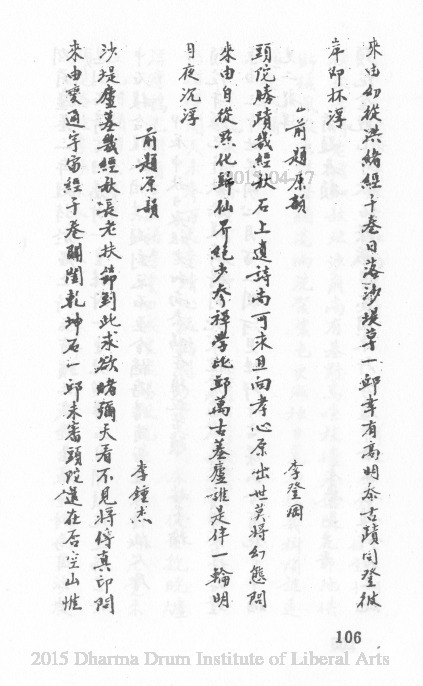 來由幻從洪緒經千卷日落沙堤草一邱幸有高明參古蹟同登彼
岸即杯浮
前題原韻
李登岡
頭陀勝蹟幾經秋石上遺詩尚可求且向孝心原出世莫將幻態問
來由自從點化歸仙界絕少參禪學此邱萬古墓廬誰是伴一輪明
月夜沉浮
前題原韻
李鐘杰
沙堤廬墓幾經秋長老扶節到此求欲睹彌天看不見將傳真印問
來由變通宇宙經千卷關閉乾坤石一邱未審頭陀還在否空山惟
106
2015-04-17
2015 Dharma Drum Institute of Liberal Arts